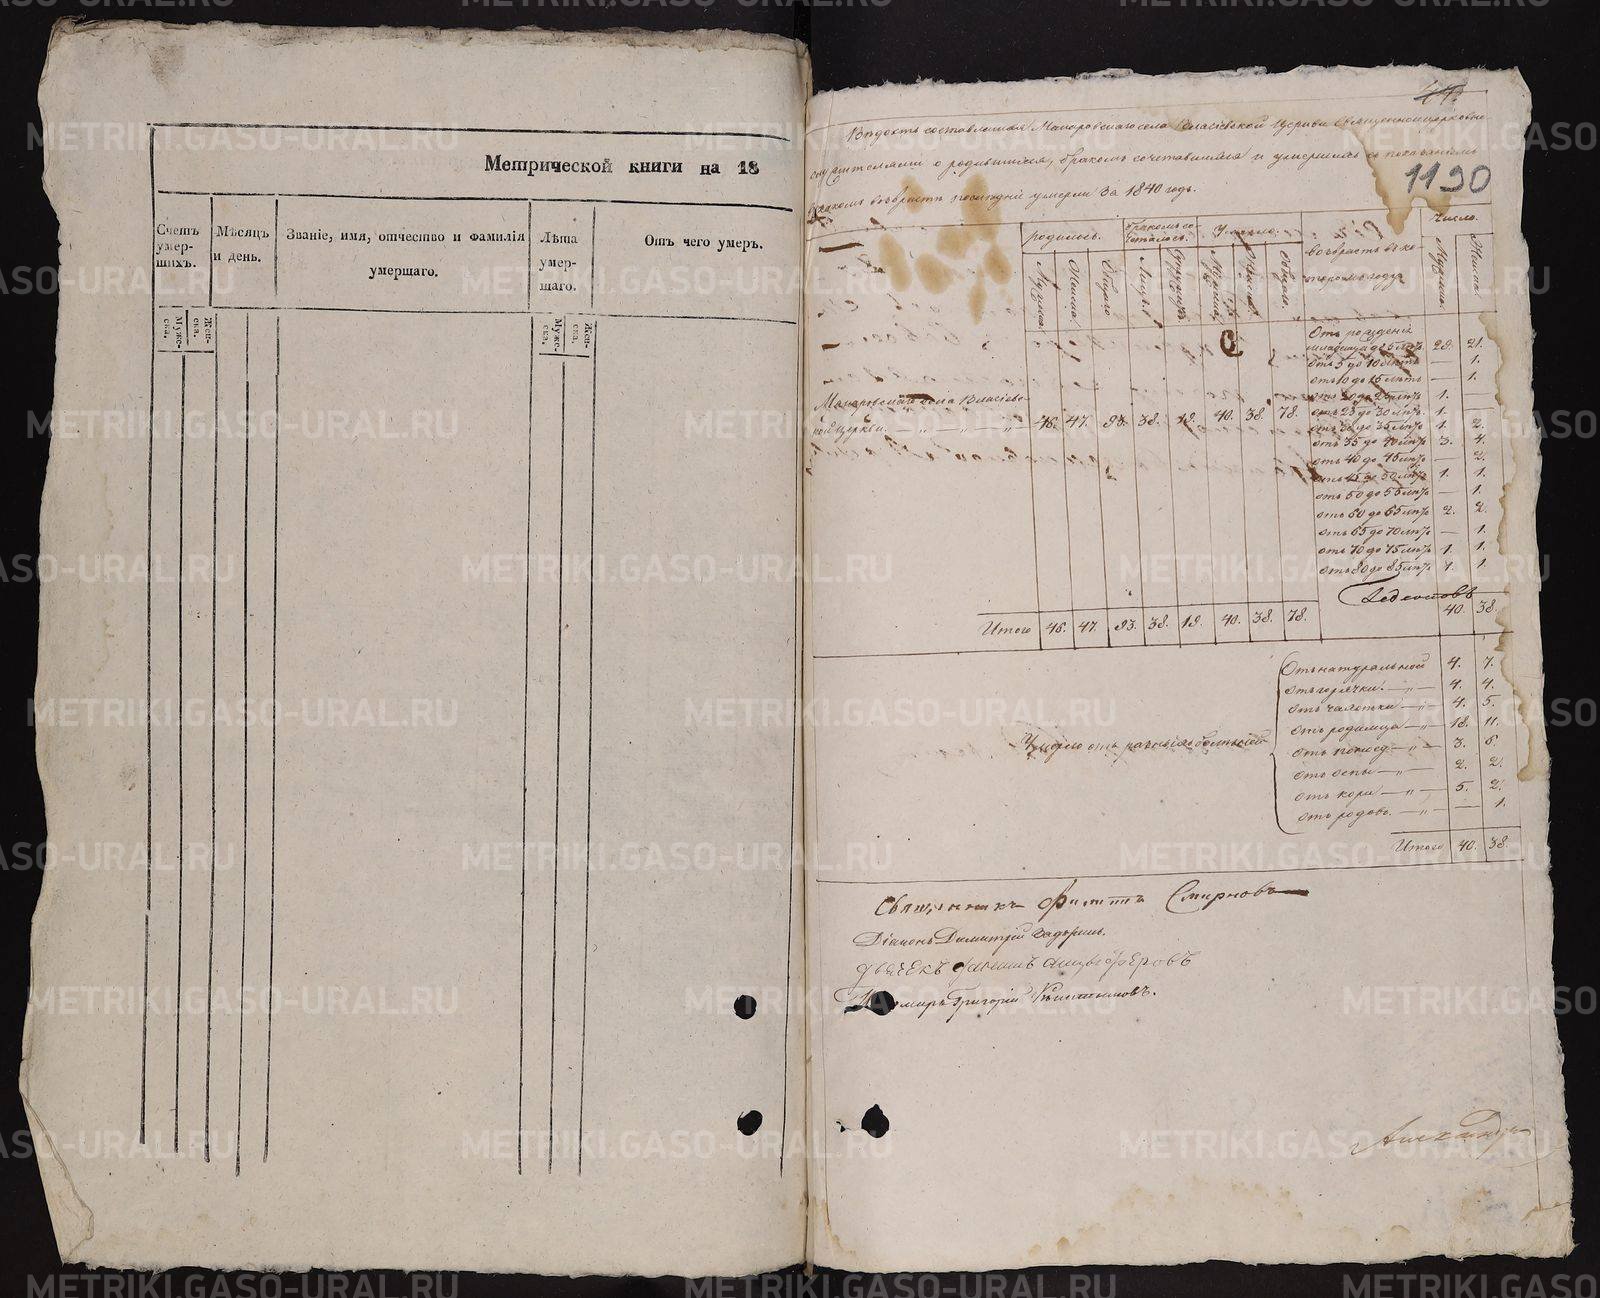 Метрической книги на 18
Счетъ умер-шихъ.
Мѣсяцъ и день.
Званіе, имя, отчество и фамилія умершаго.
Лѣта умер-шаго.
Отъ чего умеръ.
Муже-ска.
Жен-ска.
Муже-ска.
Жен-ска.
1190
Вѣдомость составленная Макаровскаго села Власіевской Церкви Священноцерковно
служителями о родившихся, бракомъ сочетавшихся и умершихъ съ показаніемъ
въ какомъ возрастѣ последніи умерли за 1840 годъ.
родилось.
бракомъ со четалось.
Умерло.
возрастъ въ ко
торомъ года
Число.
Мужска.
Женска.
Обоего
Лицъ
Мужска.
Женска.
Отъ рожденія
младенца до 5 лѣтъ 28. 21.
отъ 5 до 10 лѣтъ — 1.
отъ 10 до 15 лѣтъ — 1.
отъ 20 до 25 лѣтъ 1. —
отъ 25 до 30 лѣтъ 1. —
отъ 30 до 35 лѣтъ 1. 2.
отъ 35 до 40 лѣтъ 3. 4.
отъ 40 до 45 лѣтъ — 2.
отъ 45 до 50 лѣтъ 1. 1.
отъ 50 до 55 лѣтъ — 1.
отъ 60 до 65 лѣтъ 2. 2.
отъ 65 до 70 лѣтъ — 1.
отъ 70 до 75 лѣтъ 1. 1.
отъ 80 до 85 лѣтъ 1. 1.
Макаровскаго села Власіевс
кой Церкви. — 46. 47. 93. 38. 19. 40. 38. 78.
40. 38.
Итого 46. 47. 93. 38. 19. 40. 38. 78.
Умерло отъ разныхъ болѣзней
Отъ натуральной 4. 7.
отъ горячки — 4. 4.
отъ чахотки — 4. 5.
отъ родимца — 18. 11.
3. 6.
отъ оспы — 2. 2.
отъ кори — 5. 2.
отъ родовъ — — 1.
Итого 40. 38.
Священникъ Филиппъ Смирновъ
Діаконъ Димитрій
Дьячекъ
Пономарь Григорій
METRIKI.GASO-URAL.RU